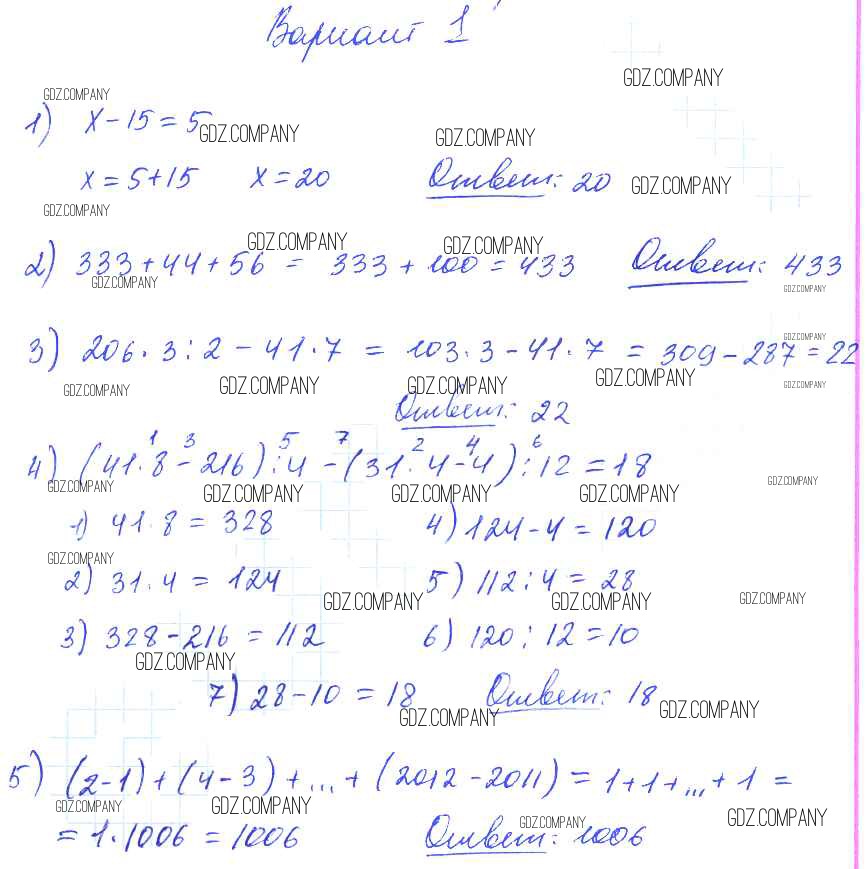 Вариант 1
GDZ.COMPANY
GDZ.COMPANY
1) x - 15 = 5 GDZ.COMPANY GDZ.COMPANY
x = 5 + 15 x = 20 Ответ: 20 GDZ.COMPANY
GDZ.COMPANY
GDZ.COMPANY GDZ.COMPANY
2) 333 + 44 + 56 = 333 + 100 = 433 Ответ: 433
GDZ.COMPANY GDZ.COMPANY
GDZ.COMPANY
3) 206 · 3 : 2 - 41 · 7 = 103 · 3 - 41 · 7 = 309 - 287 = 22
GDZ.COMPANY GDZ.COMPANY GDZ.COMPANY GDZ.COMPANY GDZ.COMPANY
Ответ: 22
1 3 5 7 2 4 6
4) (41 · 8 - 216) : 4 - (31 · 4 - 4) : 12 = 18
GDZ.COMPANY GDZ.COMPANY GDZ.COMPANY GDZ.COMPANY GDZ.COMPANY
1) 41 · 8 = 328 4) 124 - 4 = 120
GDZ.COMPANY
2) 31 · 4 = 124 5) 112 : 4 = 28
GDZ.COMPANY GDZ.COMPANY GDZ.COMPANY
3) 328 - 216 = 112 6) 120 : 12 = 10
GDZ.COMPANY
7) 28 - 10 = 18 Ответ: 18
GDZ.COMPANY GDZ.COMPANY
5) (2 - 1) + (4 - 3) + ... + (2012 - 2011) = 1 + 1 + ... + 1 =
GDZ.COMPANY GDZ.COMPANY GDZ.COMPANY GDZ.COMPANY
= 1 · 1006 = 1006 Ответ: 1006